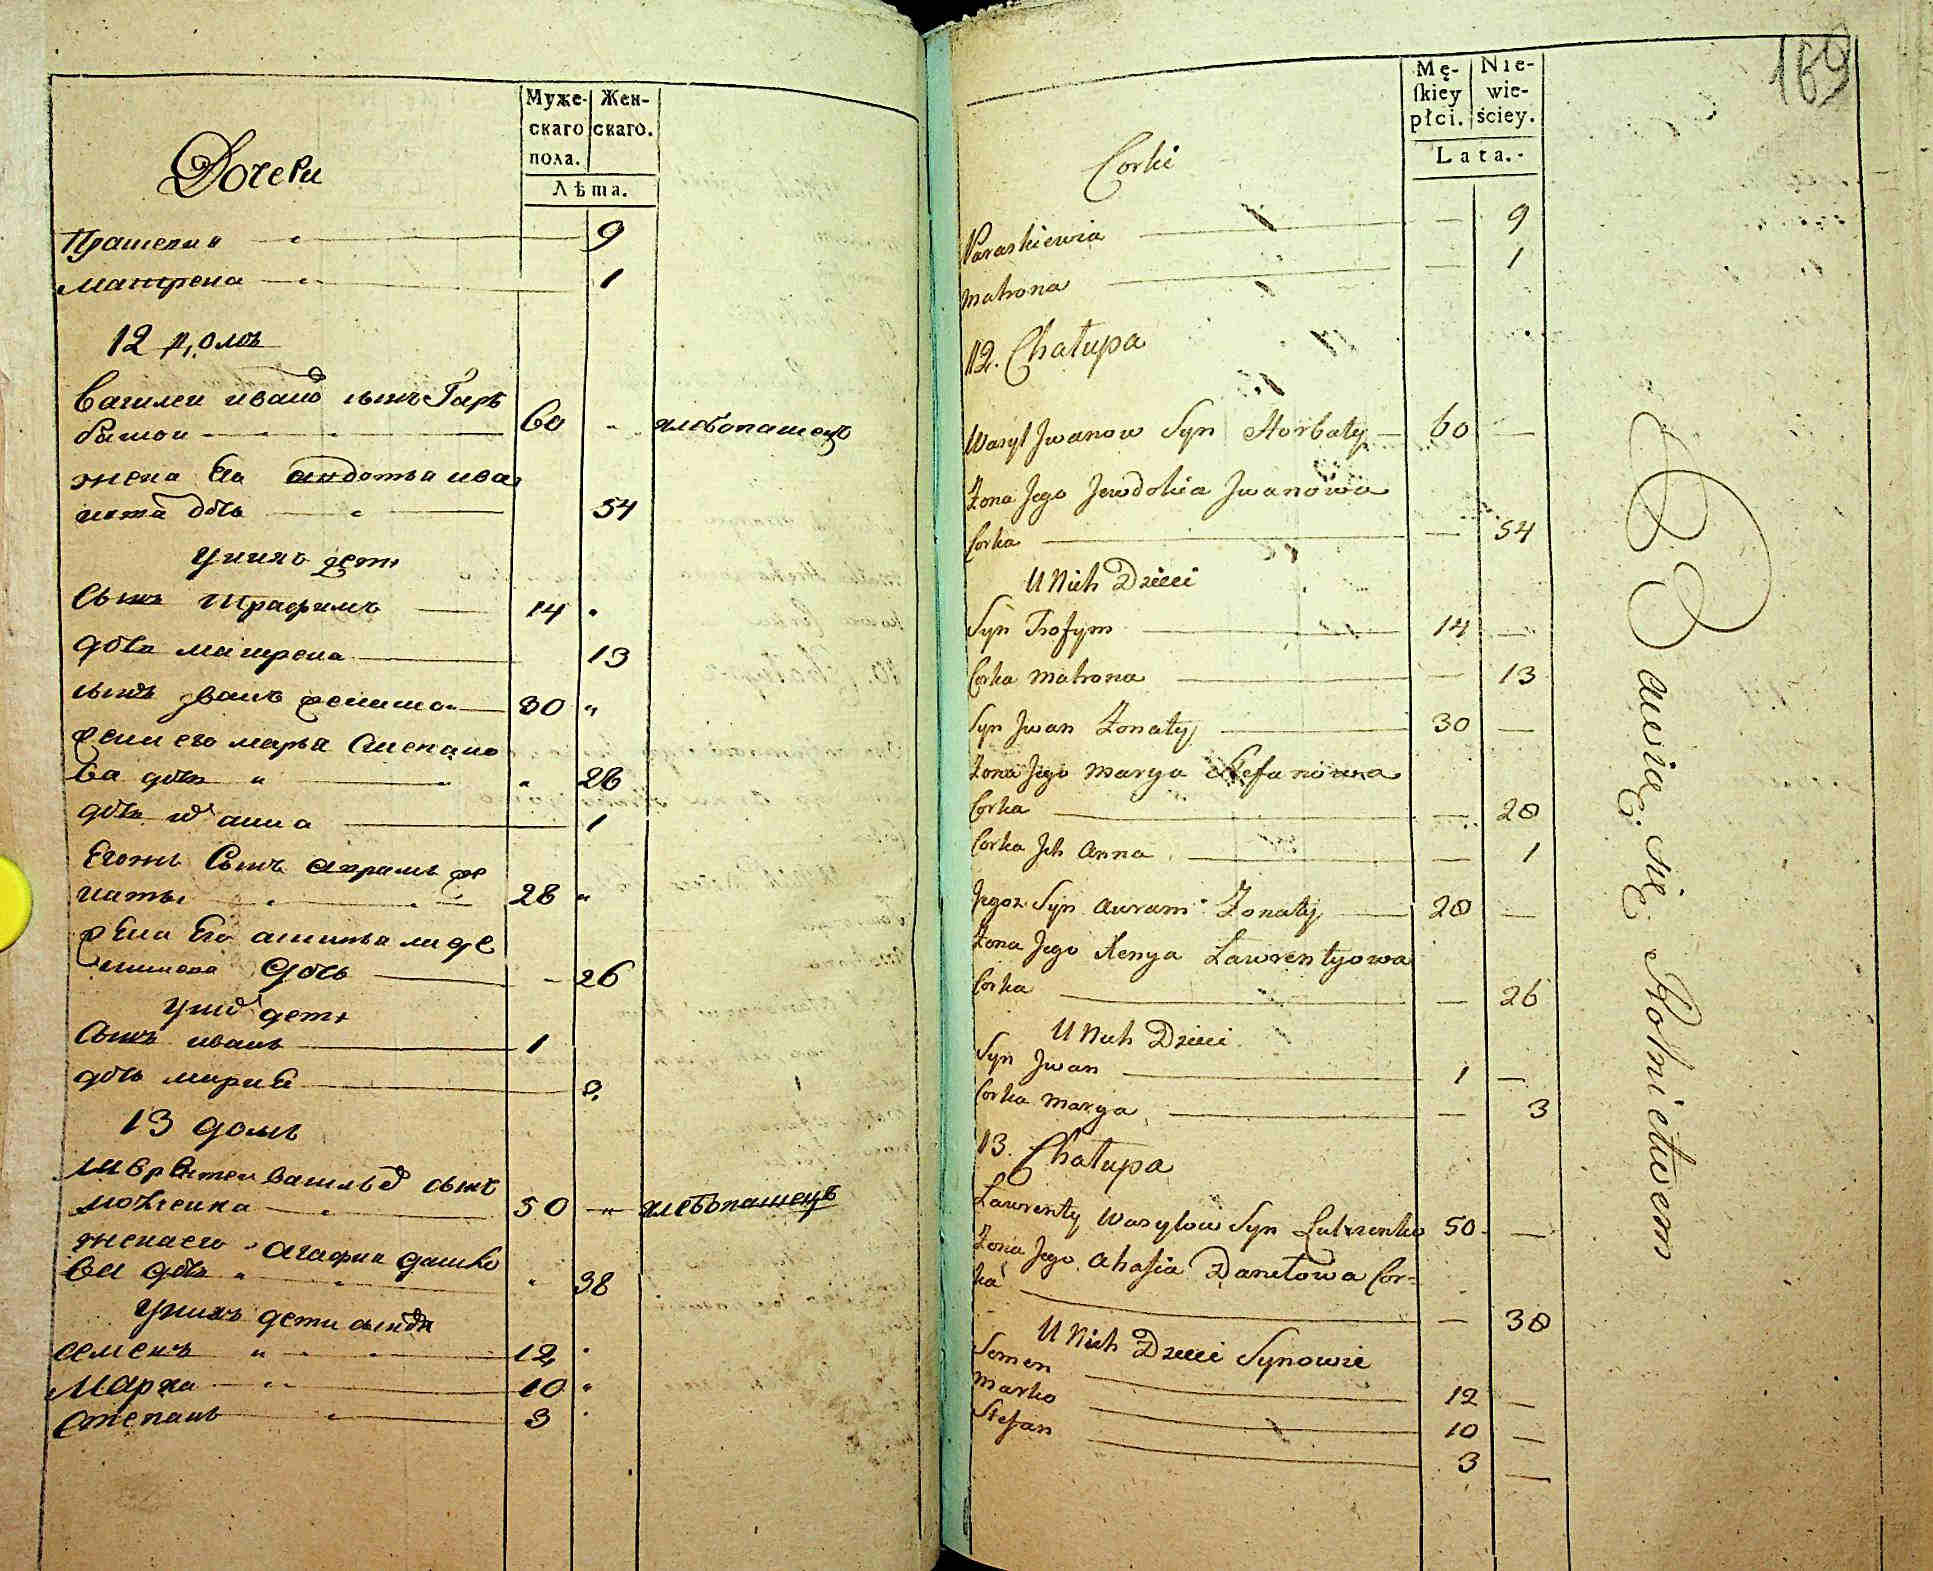 Муже-
скаго
пола.
Жен-
скаго.
Лѣта.
Дочери
9
матрена 1
12 домъ
василеи ивано сынъ Гарь
батои 60 хлебопашецъ
жена Ею авдотья ива
нова дочь 54
у нихъ дети
Сынъ трафимъ 14
дочь матрена 13
сынъ иванъ 30
его марья Степано
ва дочь 26
дочь их анна 1
Егожъ Сынъ аврамъ же
наты 28
Его
дочь 26
у них дети
Сынъ иванъ 1
дочь мария 3
13 домъ
лаврентеи василье сынъ
50 хлебопашецъ
жена его агафия данило
ва дочь 38
у нихъ дети
семенъ 12
Марка 10
степанъ 3
169
Mę-
skiey
płci.
Nie-
wie-
ściey.
Lata.
Corki
Paraskiewia 9
Matrona 1
12. Chałupa
Wasyl Jwanow Syn Horbaty 60
Żona Jego Jewdokia Jwanowa
Corka 54
U Nich Dzieci
Syn Trofym 14
Corka Matrona 13
Syn Jwan Żonaty 30
Żona Jego Marya Stefanowa
Corka 28
Corka Jch Anna 1
Jegoż Syn Awram Żonaty 28
Żona Jego Xenya Lawrentyowa
Corka 26
U Nich Dzieci
Syn Jwan 1
Corka Marya 3
13. Chałupa
Lawrenty Wasylow Syn 50
Żona Jego Ahafia Daniłowa Cor-
ka 38
U Nich Dzieci Synowie
Semen 12
Marko 10
Stefan 3
Bawią się Rolnictwem